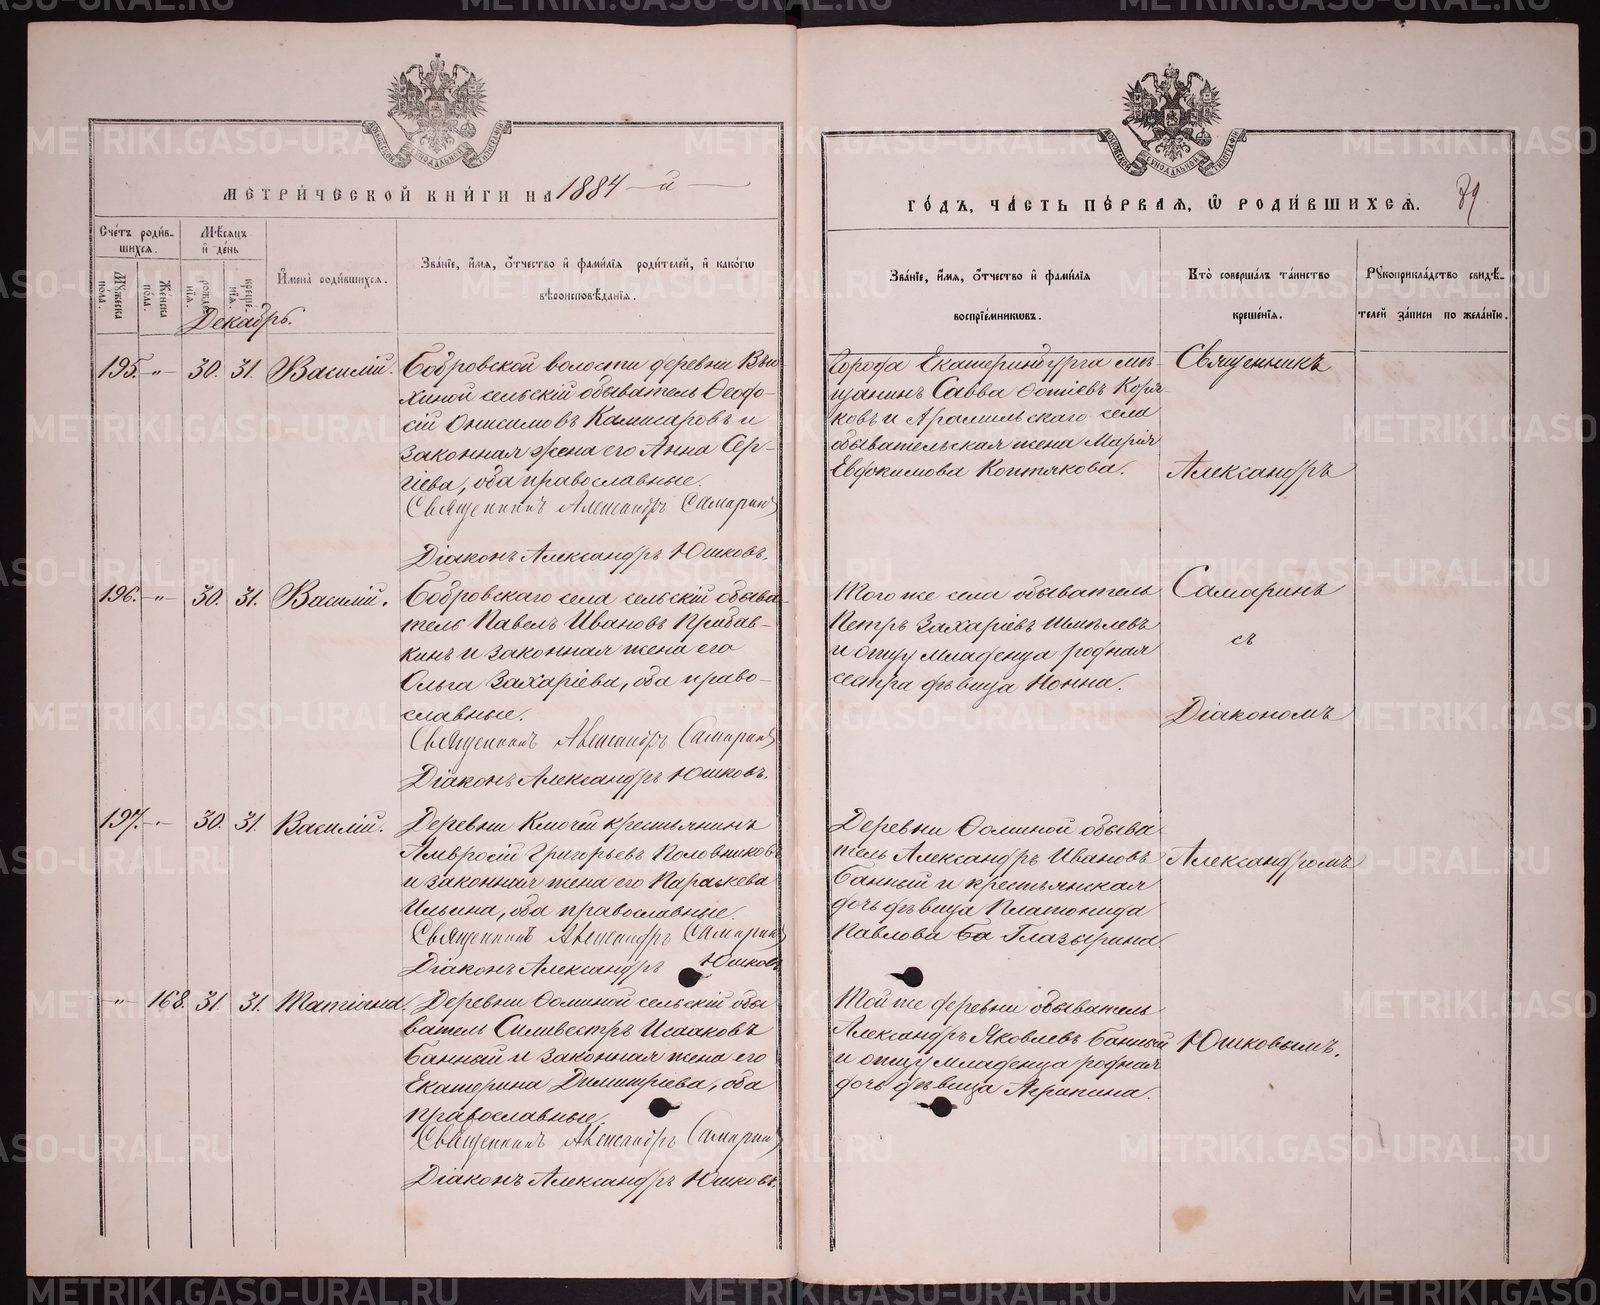 МЕТРИ́ЧЕСКОЙ КНИ́ГИ НА 1884 -й
ГО́ДЪ, ЧА́СТЬ ПЕ́РВАѦ, Ѡ҆ РОДИ́ВШИХСѦ.
Сче́тъ роди́в-
шихсѧ.
Мѣ́сѧцъ
и҆ де́нь
Мꙋ́жеска
по́ла.
Же́нска
по́ла.
рожде́-
нїѧ.
креще́-
нїѧ.
И҆мена̀ роди́вшихсѧ.
Зва́нїе, и҆́мѧ, ѻ҆́тчество и҆ фами́лїѧ роди́телей, и҆ како́гѡ
вѣроисповѣ́данїѧ.
Зва́нїе, и҆́мѧ, ѻ҆́тчество и҆ фами́лїѧ
воспрїе́мникѡвъ.
Кто̀ соверша́лъ та́инство
креще́нїѧ.
Рꙋкоприкла́дство свидѣ́-
телей за́писи по жела́нїю.
Декабрь.
195. -„- 30. 31. Василій.
Бобровской волости деревни Вью-
хиной сельскій обыватель Ѳеодо-
сій Онисимовъ Комисаровъ и
законная жена его Анна Сер-
гіева, оба православные.
Священникъ Александръ Самаринъ
Діаконъ Александръ Юшковъ.
Города Екатеринбурга мѣ-
щанинъ Савва Ѳотіевъ Коря
ковъ и Арамильскаго села
обывательская жена Марія
Евдокимова Коптякова.
Священникъ
Александръ
196. -„- 30. 31. Василій.
Бобровскаго села сельскій обыва-
тель Павелъ Ивановъ Прибав-
кинъ и законная жена его
Ольга Захаріева, оба право-
славные.
Священникъ Александръ Самаринъ
Діаконъ Александръ Юшковъ.
Того же села обыватель
Петръ Захаріевъ Шмѣлевъ
и отцу младенца родная
сестра дѣвица Нонна.
Самаринъ
съ
Діакономъ
197. -„- 30. 31. Василій.
Деревни Ключей крестьянинъ
Амвросій Григорьевъ Половниковъ
и законная жена его Параскева
Ильина, оба православные.
Священникъ Александръ Самаринъ
Діаконъ Александръ Юшковъ
Деревни Ѳоминой обыва
тель Александръ Ивановъ
Банный и крестьянская
дочь дѣвица Платонида
Павлова Глазырина
Александромъ
-„- 168 31. 31. Татіана.
Деревни Ѳоминой сельскій обы
ватель Силивестръ Исааковъ
Банный и законная жена его
Екатерина Димитріева, оба
православные.
Священникъ Александръ Самаринъ
Діаконъ Александръ Юшковъ.
Той же деревни обыватель
Александръ Яковлевъ Банный
и отцу младенца родная
дочь дѣвица Агрипина.
Юшковымъ.
METRIKI.GASO-URAL.RU